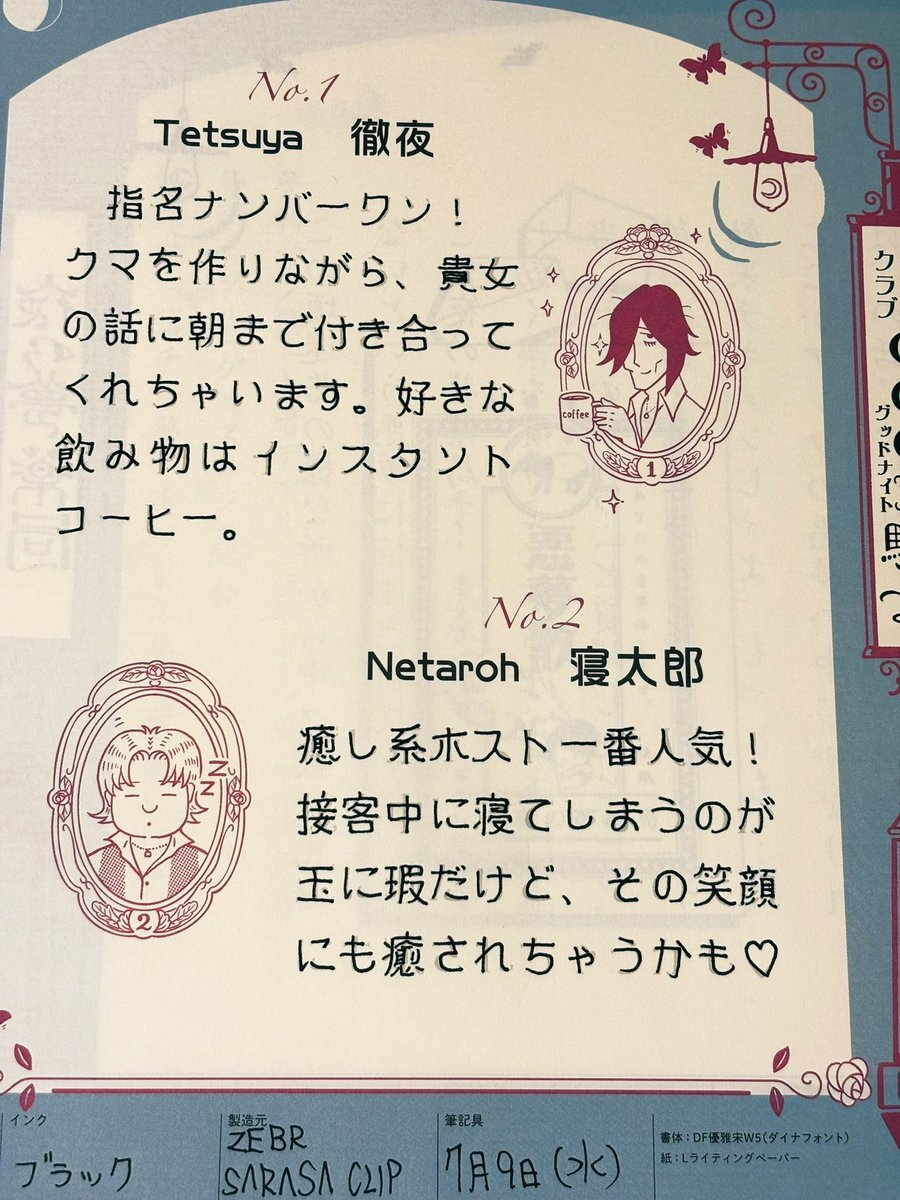 No.1
Tetsuya 徹夜
指名ナンバーワン！
クマを作りながら、貴女
の話に朝まで付き合って
くれちゃいます。好きな
飲み物はインスタント
コーヒー。
coffee
1
No.2
Netaroh 寝太郎
癒し系ホスト一番人気！
接客中に寝てしまうのが
玉に瑕だけど、その笑顔
にも癒されちゃうかも♡
zzz
2
クラブ
グッドナイト
インク
ブラック
製造元
ZEBR
SARASA CLIP
筆記具
7月9日(水)
書体：DF優雅宋W5（ダイナフォント）
紙：Lライティングペーパー